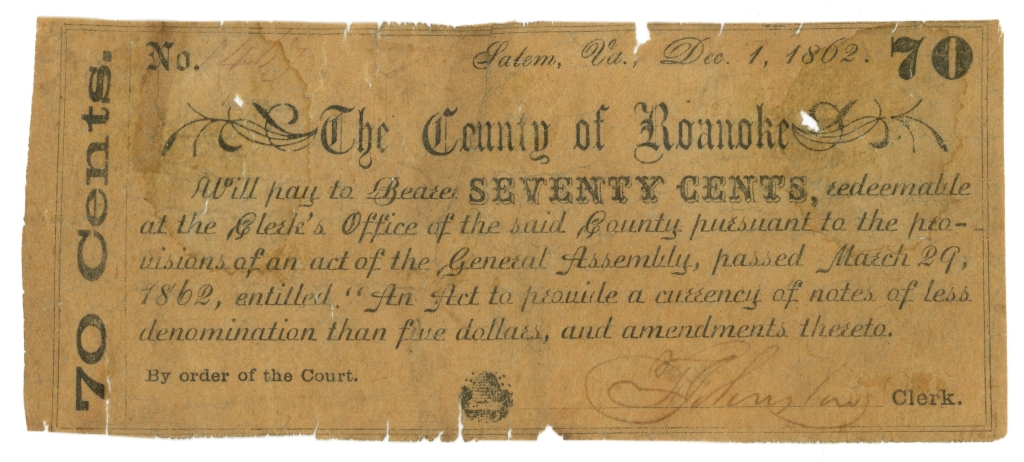 70 Cents.
No.
Salem, Va., Dec. 1, 1862. 70
The County of Roanoke
Will pay to Bearer SEVENTY CENTS, redeemable
at the Clerk's Office of the said County pursuant to the pro-
visions of an act of the General Assembly, passed March 29,
1862, entitled, "An Act to provide a currency of notes of less
denomination than five dollars, and amendments thereto.
By order of the Court.
Johnston Clerk.